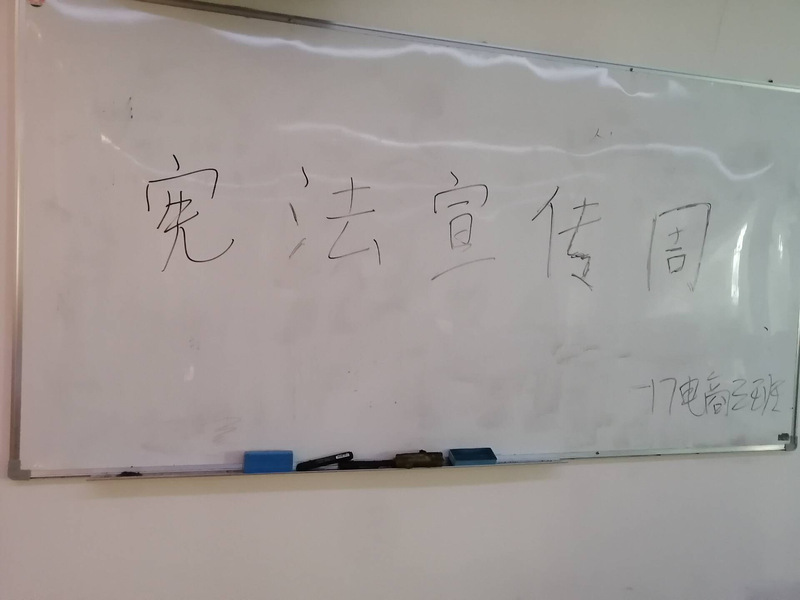 宪法宣传周
17电商三班